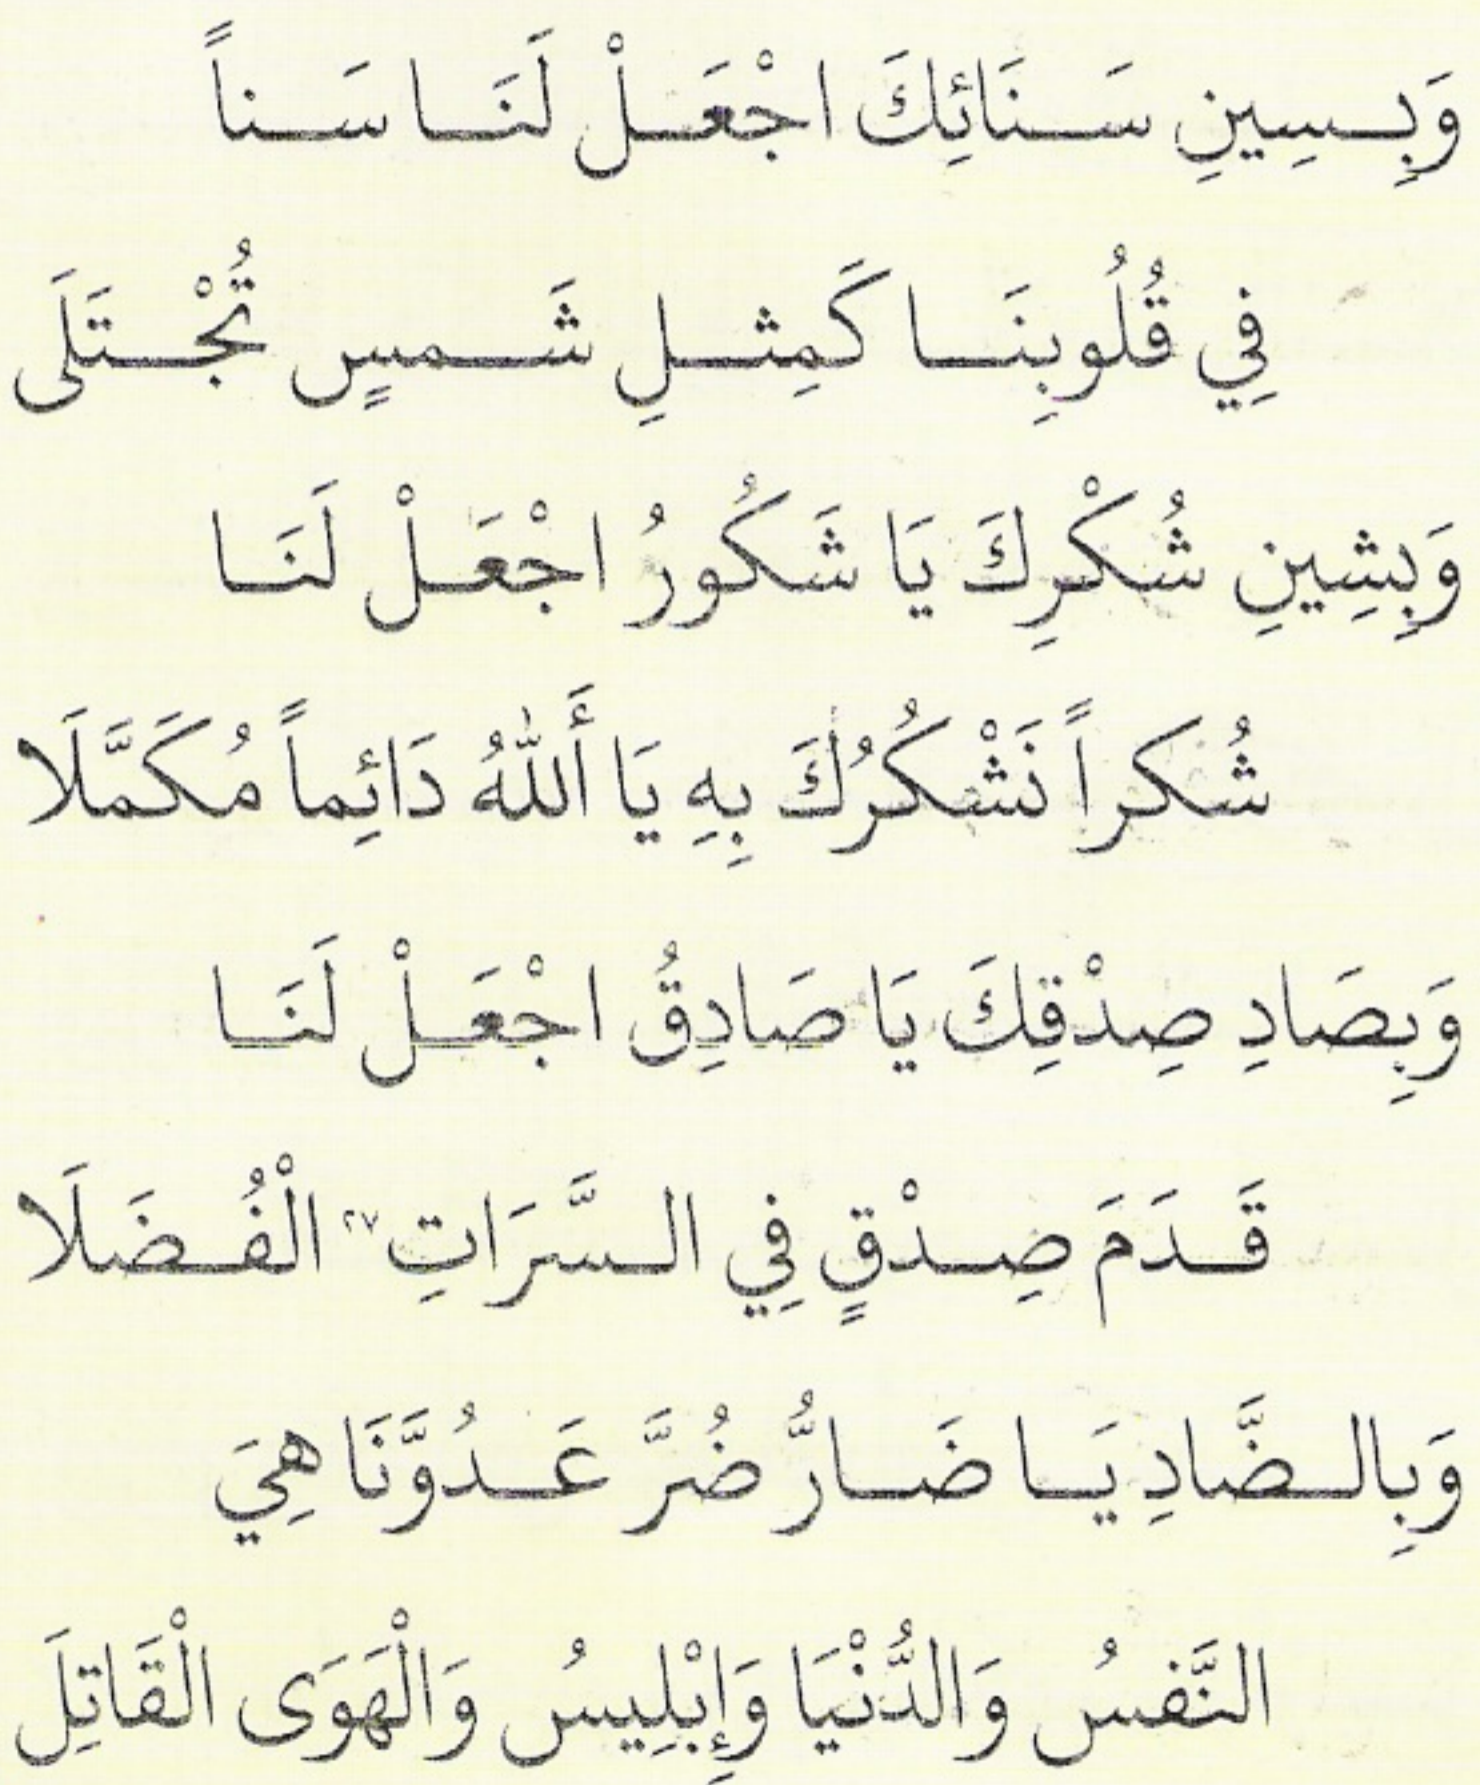 وَبِسِينِ سَنَائِكَ اجْعَلْ لَنَا سَناً
فِي قُلُوبِنَا كَمِثلِ شَمسٍ تُجْتَلَى
وَبِشِينِ شُكْرِكَ يَا شَكُورُ اجْعَلْ لَنَا
شُكراً نَشْكُرُكَ بِهِ يَا أَللّٰهُ دَائِماً مُكَمَّلَا
وَبِصَادِ صِدْقِكَ يَا صَادِقُ اجْعَلْ لَنَا
قَدَمَ صِدْقٍ فِي السَّرَاتِ ٢٧ الْفُضَلَا
وَبِالضَّادِ يَا ضَارُّ ضُرَّ عَدُوَّنَا هِيَ
النَّفسُ وَالدُّنْيَا وَإِبْلِيسُ وَالْهَوَى الْقَاتِلَ